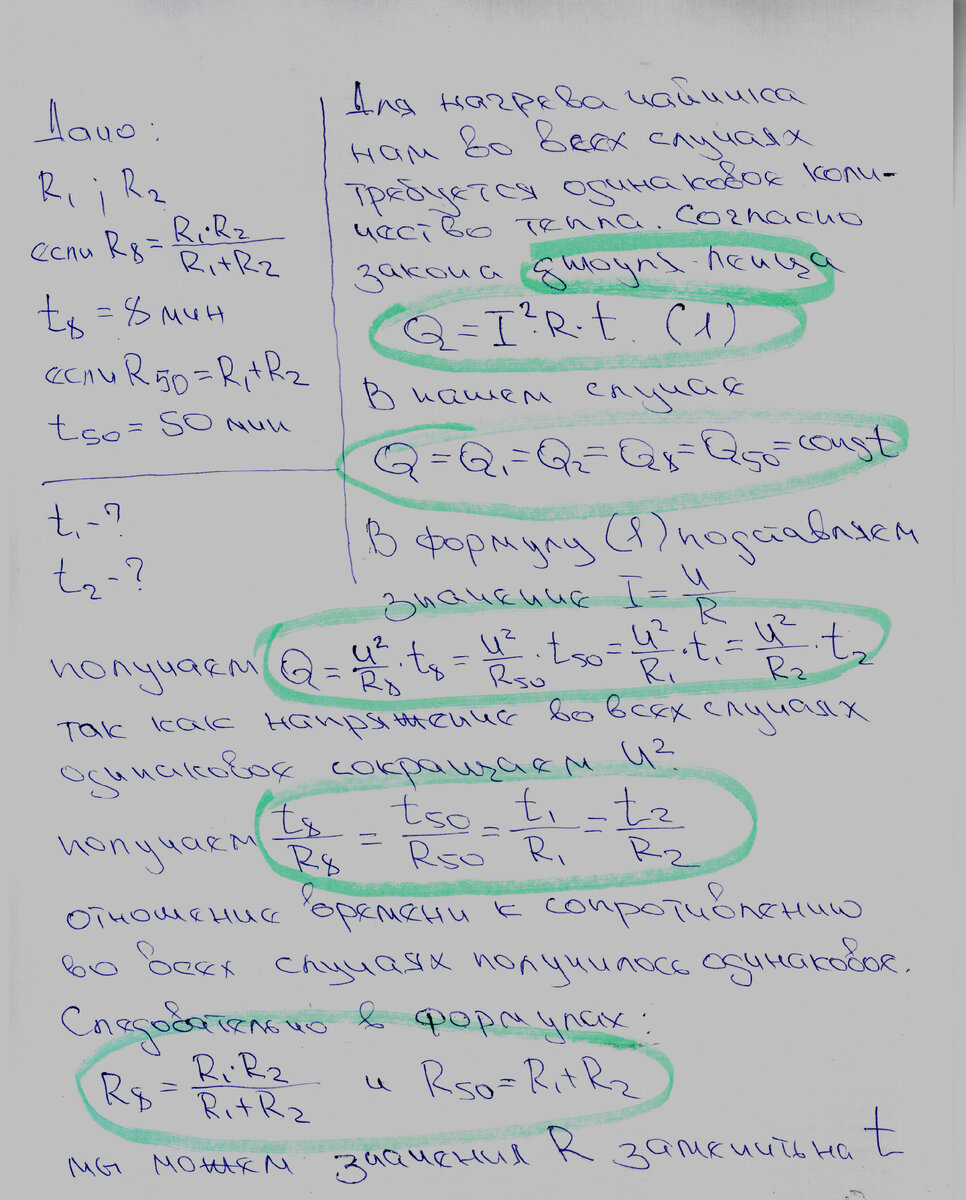 Дано:
R₁ ; R₂
если R₈ = R₁·R₂ / R₁+R₂
t₈ = 8 мин
если R₅₀ = R₁+R₂
t₅₀ = 50 мин
t₁ - ?
t₂ - ?
Для нагрева чайника
нам во всех случаях
требуется одинаковое коли-
чество тепла. Согласно
закона джоуля-Ленца
Q = I²·R·t. (1)
В нашем случае
Q = Q₁ = Q₂ = Q₈ = Q₅₀ = const
В формулу (1) подставляем
значение I = U / R
получаем Q = U²/R₈ · t₈ = U²/R₅₀ · t₅₀ = U²/R₁ · t₁ = U²/R₂ · t₂
так как напряжение во всех случаях
одинаковое сокращаем U².
получаем t₈/R₈ = t₅₀/R₅₀ = t₁/R₁ = t₂/R₂
отношение времени к сопротивлению
во всех случаях получилось одинаковое.
Следовательно в формулах:
R₈ = R₁·R₂ / R₁+R₂ и R₅₀ = R₁+R₂
мы можем значения R заменить на t